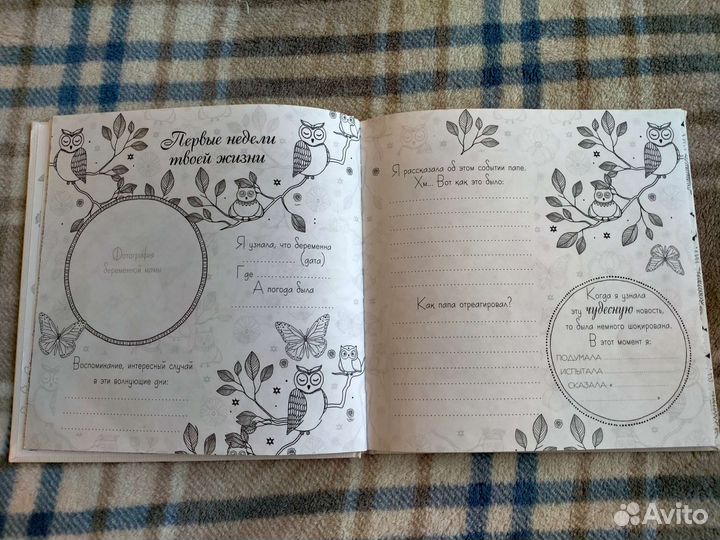 Первые недели
твоей жизни
Фотография
беременной мамы
Я узнала, что беременна
(дата)
Где
А погода была
Воспоминание, интересный случай
в эти волнующие дни:
Я рассказала об этом событии папе.
Хм... Вот как это было:
Как папа отреагировал?
Когда я узнала
эту чудесную новость,
то была немного шокирована.
В этот момент я:
ПОДУМАЛА
ИСПЫТАЛА
СКАЗАЛА «
»
Avito